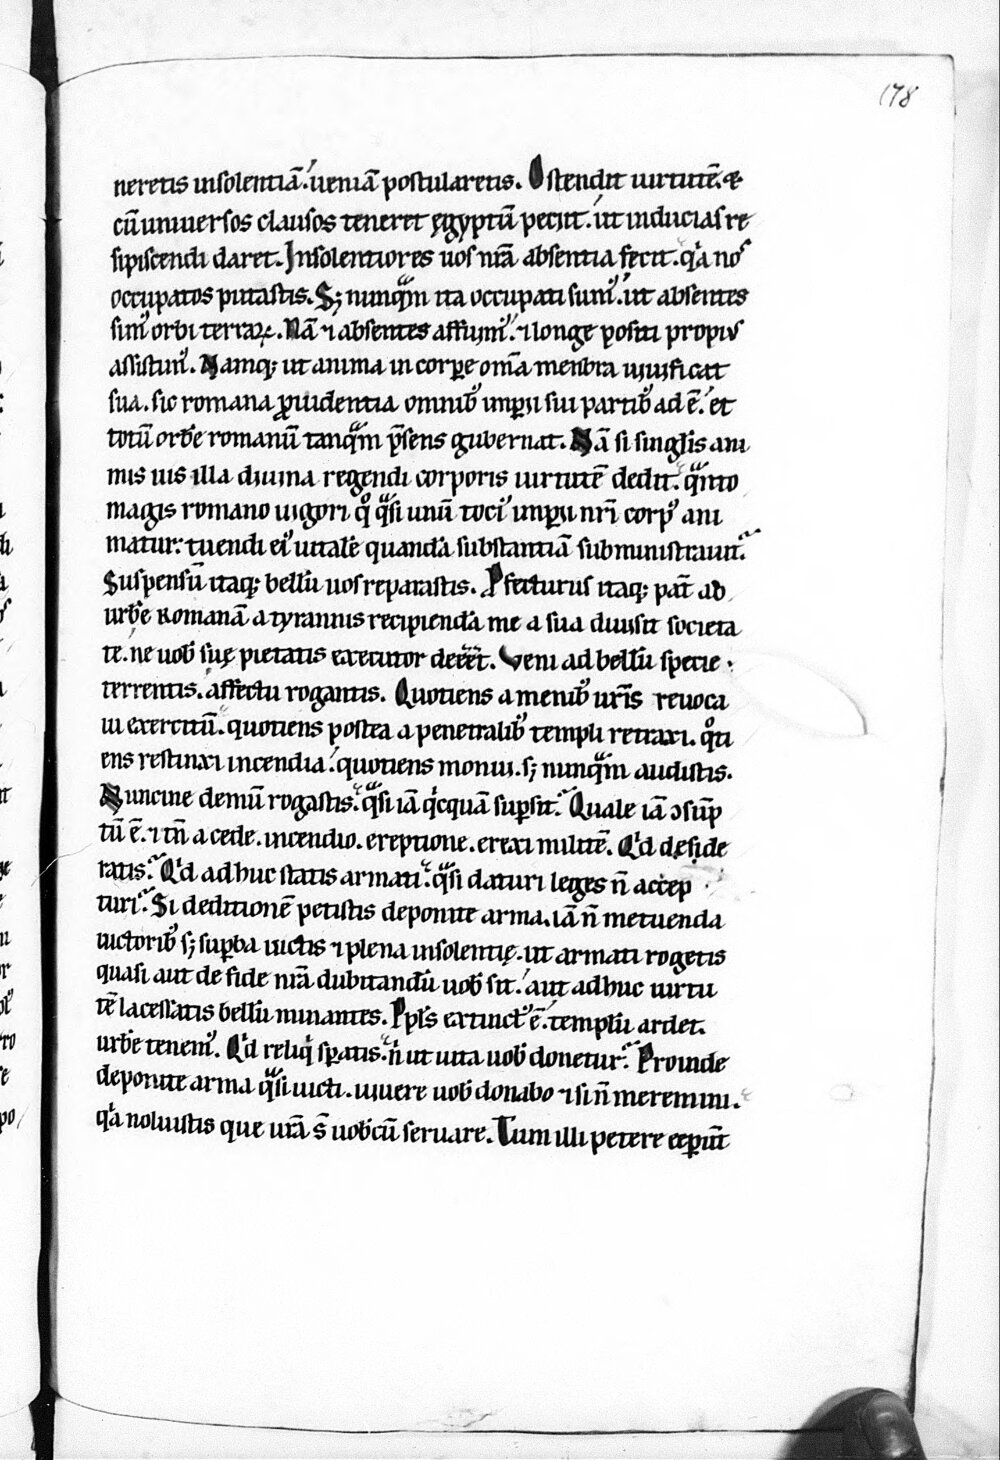 178
neretis insolentiā. ueniā postularetis. Ostendit uirtutē. &
cū uniuersos clausos teneret ęgyptū petiit. ut inducias re
sipiscendi daret. Insolentiores uos nr̄a absentia fecit. qͥa noˢ
occupatos putastis. S; nunqͣm ita occupati sumꝰ. ut absentes
simꝰ orbi terraꝝ. Nā ⁊ absentes assumꝰ. ⁊ longe positi propiꝰ
assistimꝰ. Namq; ut anima in corpꝑe om̄a menbra uiuificat
sua. sic romana ꝓuidentia omnibꝰ imꝑii sui partibꝰ adē. et
totū orbē romanū tanqͣm p̄sens gubernat. Nā si singlis ani
mis uis illa diuina regendi corporis uirtutē dedit. qͣnto
magis romano uigori qͦ qͣsi unū tociꝰ imꝑii nr̄i corpꝰ ani
matur. tuendi eiꝰ uitalē quandā substantiā subministrauit.
Suspensū itaq; bellū uos reparastis. Pfecturus itaq; pat̄ ab
urbē romanā a tyrannis recipiendā me a sua diuisit societa
te. ne uob̄ suę pietatis executor deeēt. Veni ad bellū specie
terrentis. affectu rogantis. Quotiens a menibꝰ ur̄is reuoca
ui exercitū. quotiens postea a penetralibꝰ templi retraxi. qͦti
ens restinxi incendia. quotiens monui. s; nunqͣm audistis.
Nuncine demū rogastis. qͣsi iā qͥcquā suꝑsit. Quale iā ↄsūp
tū ē. ⁊ tn̄ a cede. incendio. ereptione. erexi militē. Qͥd deside
ratis. Qͥd adhuc statis armati. qͣsi daturi leges n̄ accep
turi. Si deditionē petistis deponite arma. iā n̄ metuenda
uictoribꝰ s; suꝑba uictis ⁊ plena insolentię. ut armati rogetis
quasi aut de fide nr̄a dubitandū uob̄ sit. aut adhuc uirtu
tē lacessatis bellū minantes. Ppl̄s extinctꝰ ē. templū ardet.
urbē tenemꝰ. Qͥd reliqͥ sꝑatis. n̄ ut uita uob̄ donetur. Proinde
deponite arma qͣsi uicti. uiuere uob̄ donabo ⁊ si n̄ meremini.
qͥa noluistis que ur̄a s̄ uob̄cū seruare. Tum illi petere ceꝑiut̄